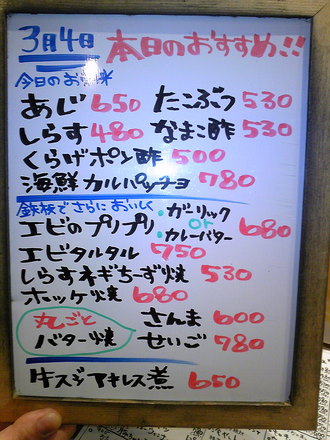 3月4日 本日のおすすめ!!
今日のお
あじ 650 たこぶつ 530
しらす 480 なまこ酢 530
くらげポン酢 500
海鮮カルパッチョ 780
鉄板でさらにおいしく
エビのプリプリ ・ガーリック or ・カレーバター 680
エビタルタル 750
しらすネギちーず焼 530
ホッケ焼 680
丸ごと さんま 600
バター焼 せいご 780
牛スジアキレス煮 650